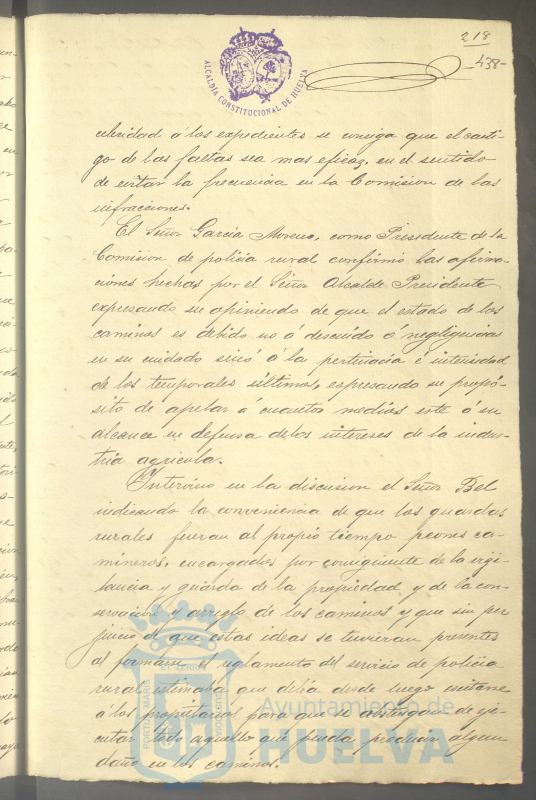 218
438
ALCALDÍA CONSTITUCIONAL DE HUELVA
cleridad á los expedientes se consiga que el casti-
go de las faltas sea mas eficaz, en el sentido
de evitar la frecuencia en la Comision de las
infracciones.
El Señor Garcia Moreno, como Presidente de la
Comision de policia rural confirmó las afirma-
ciones hechas por el Señor Alcalde Presidente
expresando su opiniendo de que el estado de los
caminos es debido no á descuido ó negligencias
en su cuidado sinó á la pertinacia é intensidad
de los temporales últimos, expresando su propó-
sito de apelar á cuantos medios esté á su
alcance en defensa de los intereses de la indus-
tria agricola.
Intervino en la discusion el Señor Bel
indicando la conveniencia de que los guardas
rurales fueran al propio tiempo peones ca-
mineros, encargados por consiguiente de la vigi-
lancia y guarda de la propiedad y de la con-
servacion y arreglo de los caminos y que sin per
juicio de que estas ideas se tuvieran presentes
al formarse el reglamento del servicio de policia
rural estimaba que debia desde luego
á los propietarios para que se abstengan de eje-
cutar todo aquello que pueda producir algun
daño en los caminos.
PORTUS MARIS ET TERRAE CUSTODIA
Ayuntamiento de
HUELVA